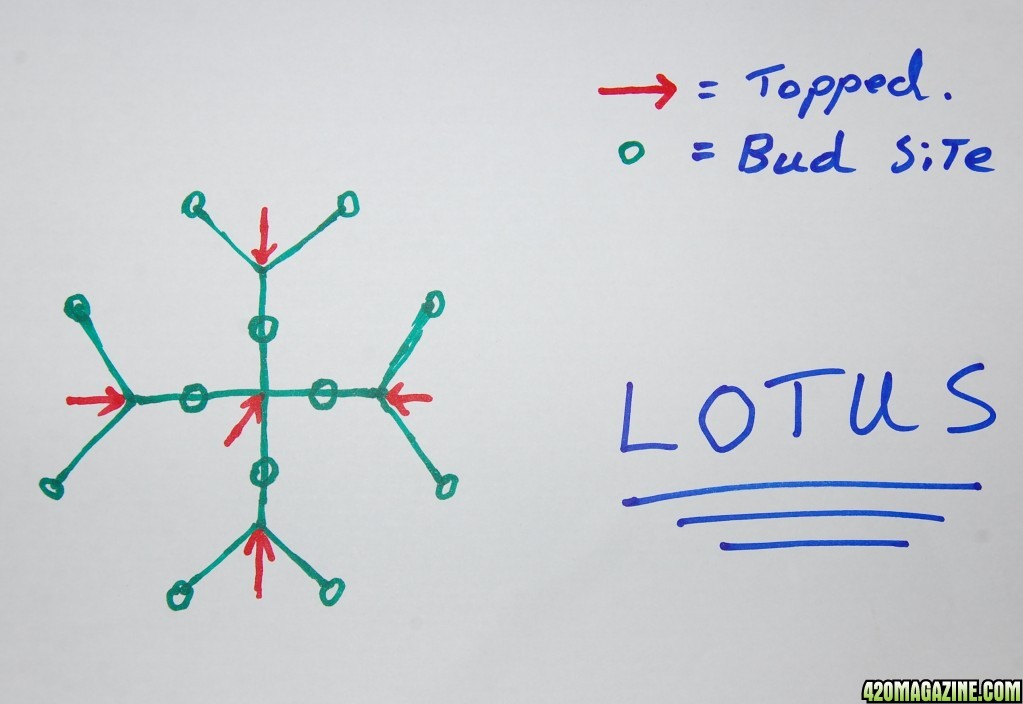 = Topped.
= Bud SiTe
LOTUS
420MAGAZINE.COM